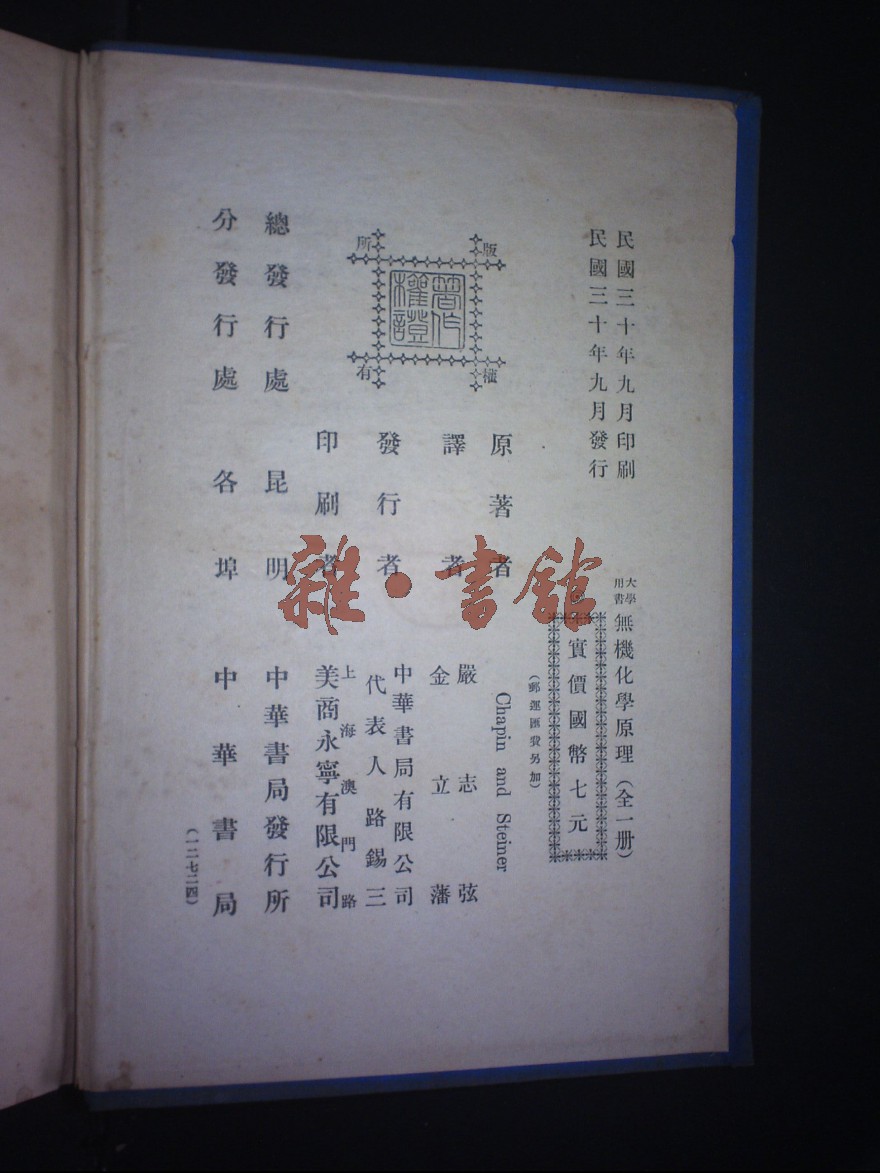 民國三十年九月印刷
民國三十年九月發行
大學用書
無機化學原理（全一册）
實價國幣七元
（郵運匯費另加）
原著者 Chapin and Steiner
譯者 嚴志弦
金立藩
發行者 中華書局有限公司
代表人路錫三
印刷者 上海澳門路
美商永寧有限公司
總發行處 昆明 中華書局發行所
分發行處 各埠 中華書局
（一二七二四）
版權所有
著作權證
雜·書館